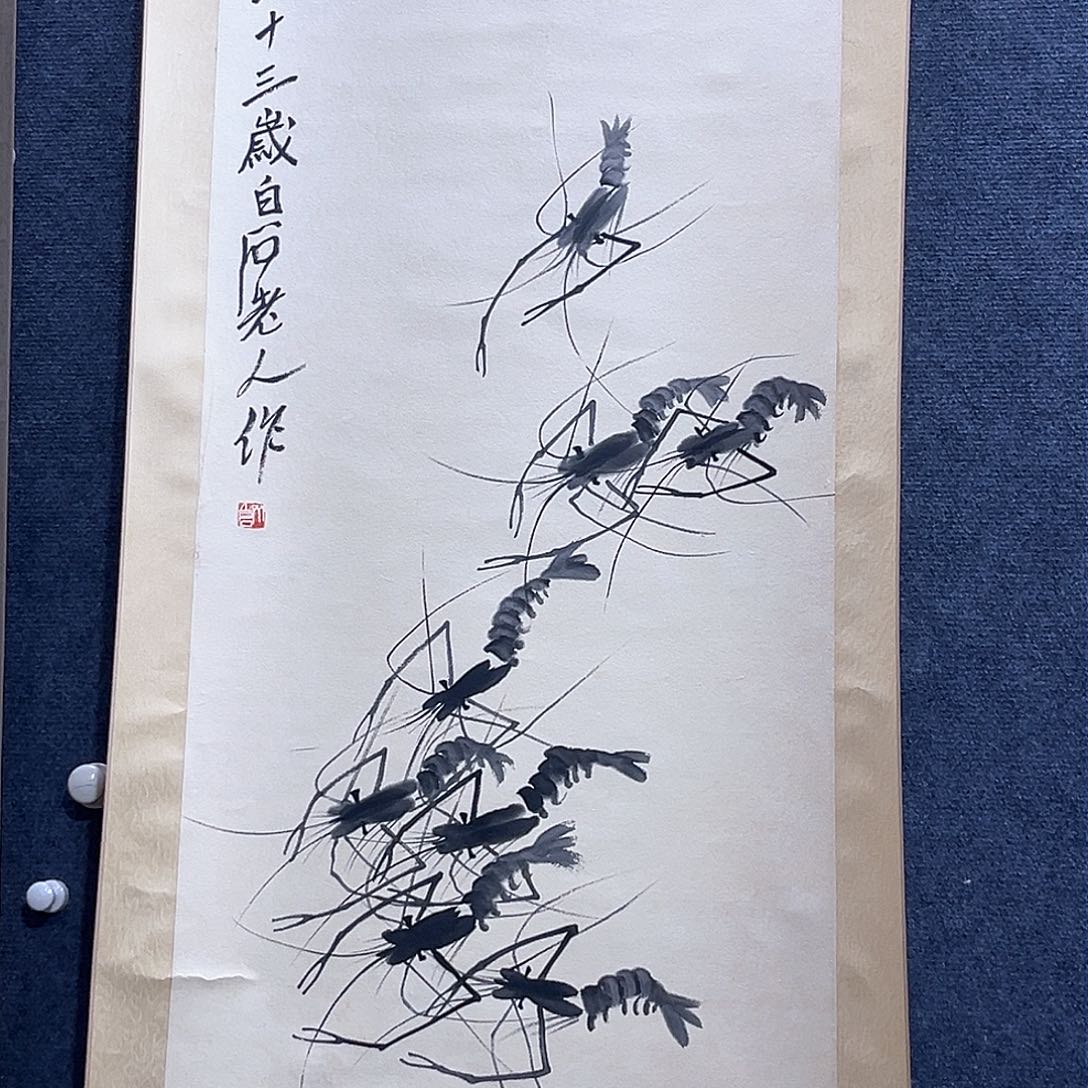 十三歲白石老人作